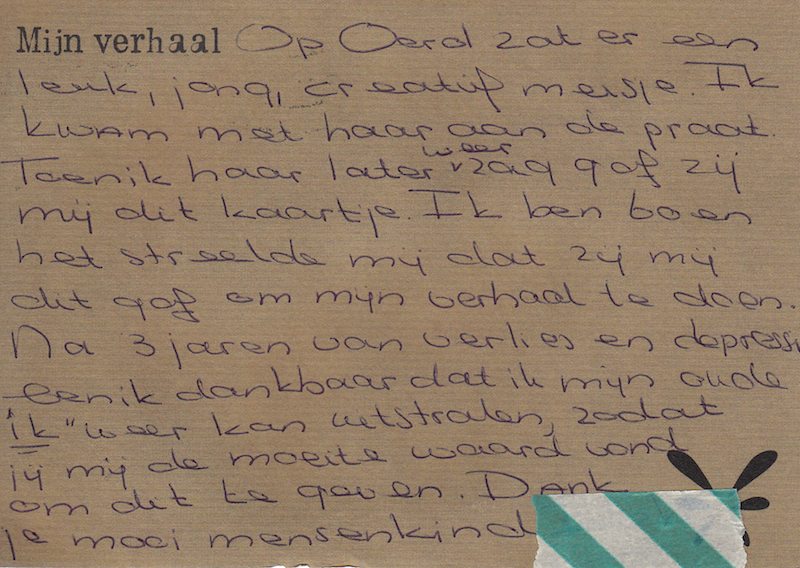 Mijn verhaal Op Oerd zat er een
leuk, jong, creatief meisje. Ik
kwam met haar aan de praat.
Toen ik haar later weer zag gaf zij
mij dit kaartje. Ik ben 60 en
het streelde mij dat zij mij
dit gaf om mijn verhaal te doen.
Na 3 jaren van verlies en depressi
ben ik dankbaar dat ik mijn oude
"ik" weer kan uitstralen, zodat
jij mij de moeite waard vond
om dit te geven. Dank
je mooi mensenkind